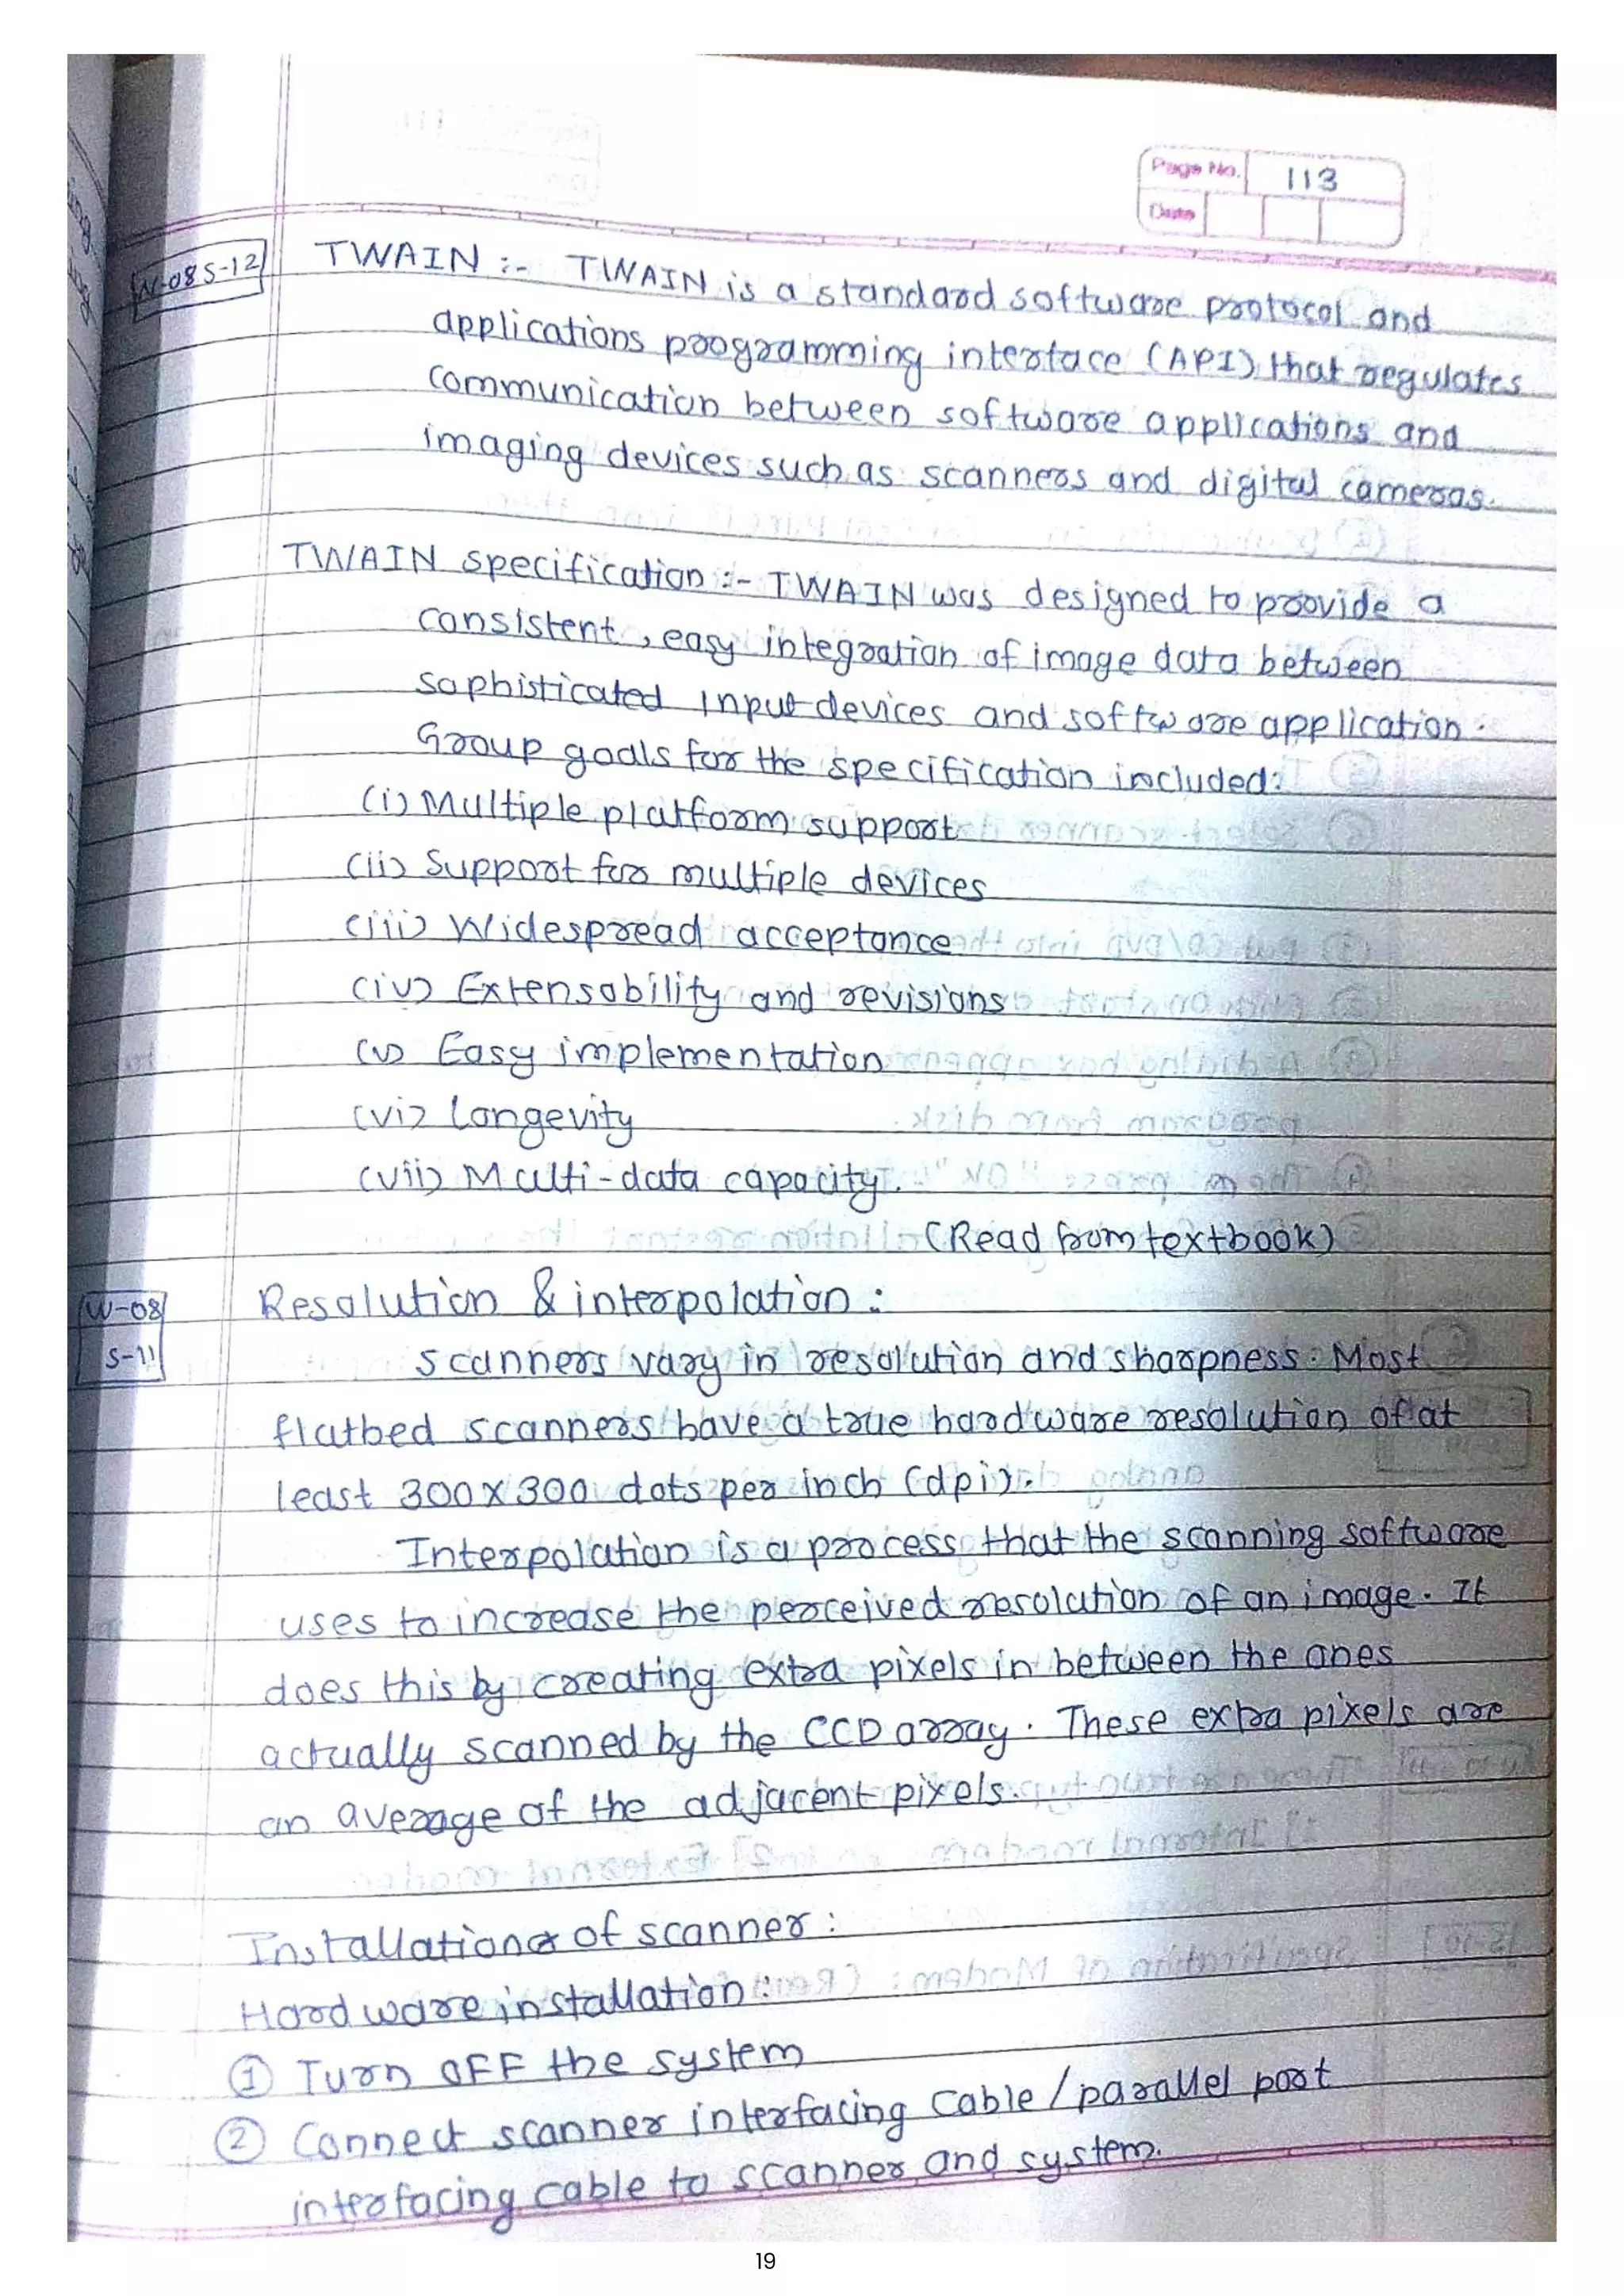 Page No. 113
Date
W-08 S-12
TWAIN :- TWAIN is a standard software protocol and
applications programming interface (API) that regulates
communication between software applications and
imaging devices such as scanners and digital cameras.
TWAIN specification :- TWAIN was designed to provide a
consistent, easy integration of image data between
sophisticated input devices and software application.
Group goals for the specification included:
(i) Multiple platform support
(ii) Support for multiple devices
(iii) Widespread acceptance
(iv) Extensability and revisions
(v) Easy implementation
(vi) Longevity
(vii) Multi-data capacity.
(Read from textbook)
W-08
S-11
Resolution & interpolation :
scanners vary in resolution and sharpness. Most
flatbed scanners have a true hardware resolution of at
least 300 X 300 dots per inch (dpi).
Interpolation is a process that the scanning software
uses to increase the perceived resolution of an image. It
does this by creating extra pixels in between the ones
actually scanned by the CCD array. These extra pixels are
an average of the adjacent pixels.
Installation of scanner :
Hardware installation :
① Turn OFF the system
② Connect scanner interfacing cable / parallel port
interfacing cable to scanner and system.
19